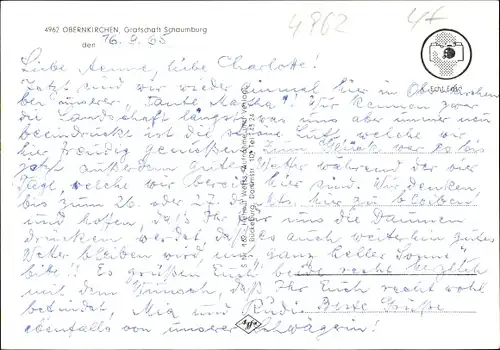 4962
4962 OBERNKIRCHEN, Grafschaft Schaumburg
den 16.9.65
Liebe Aenne, liebe Charlotte!
Jetzt sind wir wieder einmal hier in Obernkirchen
bei unserer "Tante Martha"! Wir kennen zwar
die Landschaft längst, was uns aber immer neu
beeindruckt ist die schöne Luft, welche wir
hier freudig genießen. Zum Glück war es bis
jetzt außerdem gutes Wetter während der vier
Tage, welche wir bereits hier sind. Wir denken
bis zum 26. oder 27. ds. Mts. hier zu bleiben
und hoffen, daß Ihr für uns die Daumen
drücken werdet, daß es auch weiterhin gutes
Wetter bleiben wird und ganz heller Sonne
bitte!! Es grüßen Euch beide recht herzlich
mit dem Wunsch, daß Ihr Euch recht wohl
befindet, Mia und Rudi. Beste Grüße
ebenfalls von unserer Schwägerin!
Agfa